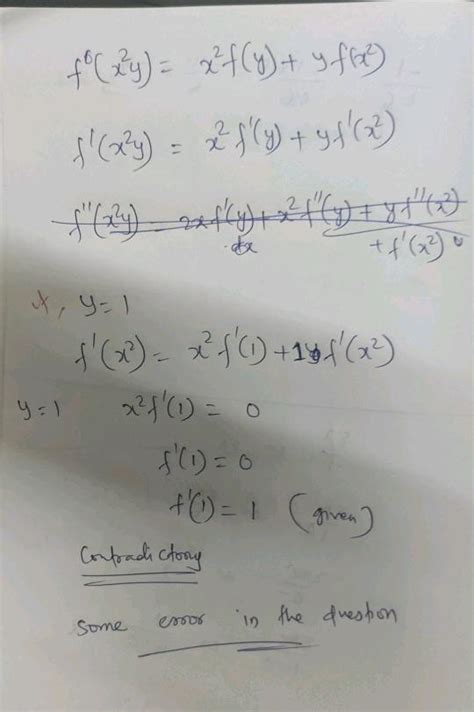 f⁶(x²y) = x²f(y) + y f(x²)
f'(x²y) = x²f'(y) + yf'(x²)
f''(x²y) = 2xf'(y) + x²f''(y) + yf''(x²)
dx + f'(x²)
y=1
f'(x²) = x²f'(1) + 1yf'(x²)
y=1 x²f'(1) = 0
f'(1) = 0
f'(1) = 1 (given)
Contradictory
some error in the question